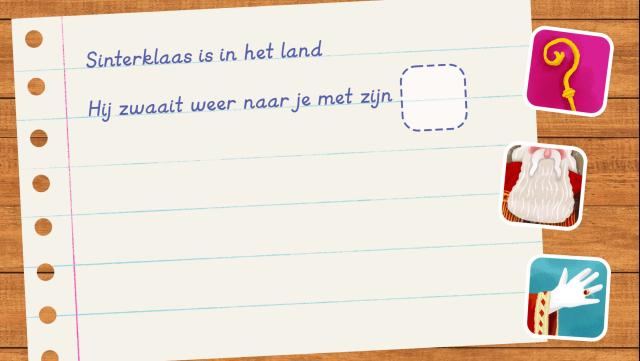 Sinterklaas is in het land
Hij zwaait weer naar je met zijn